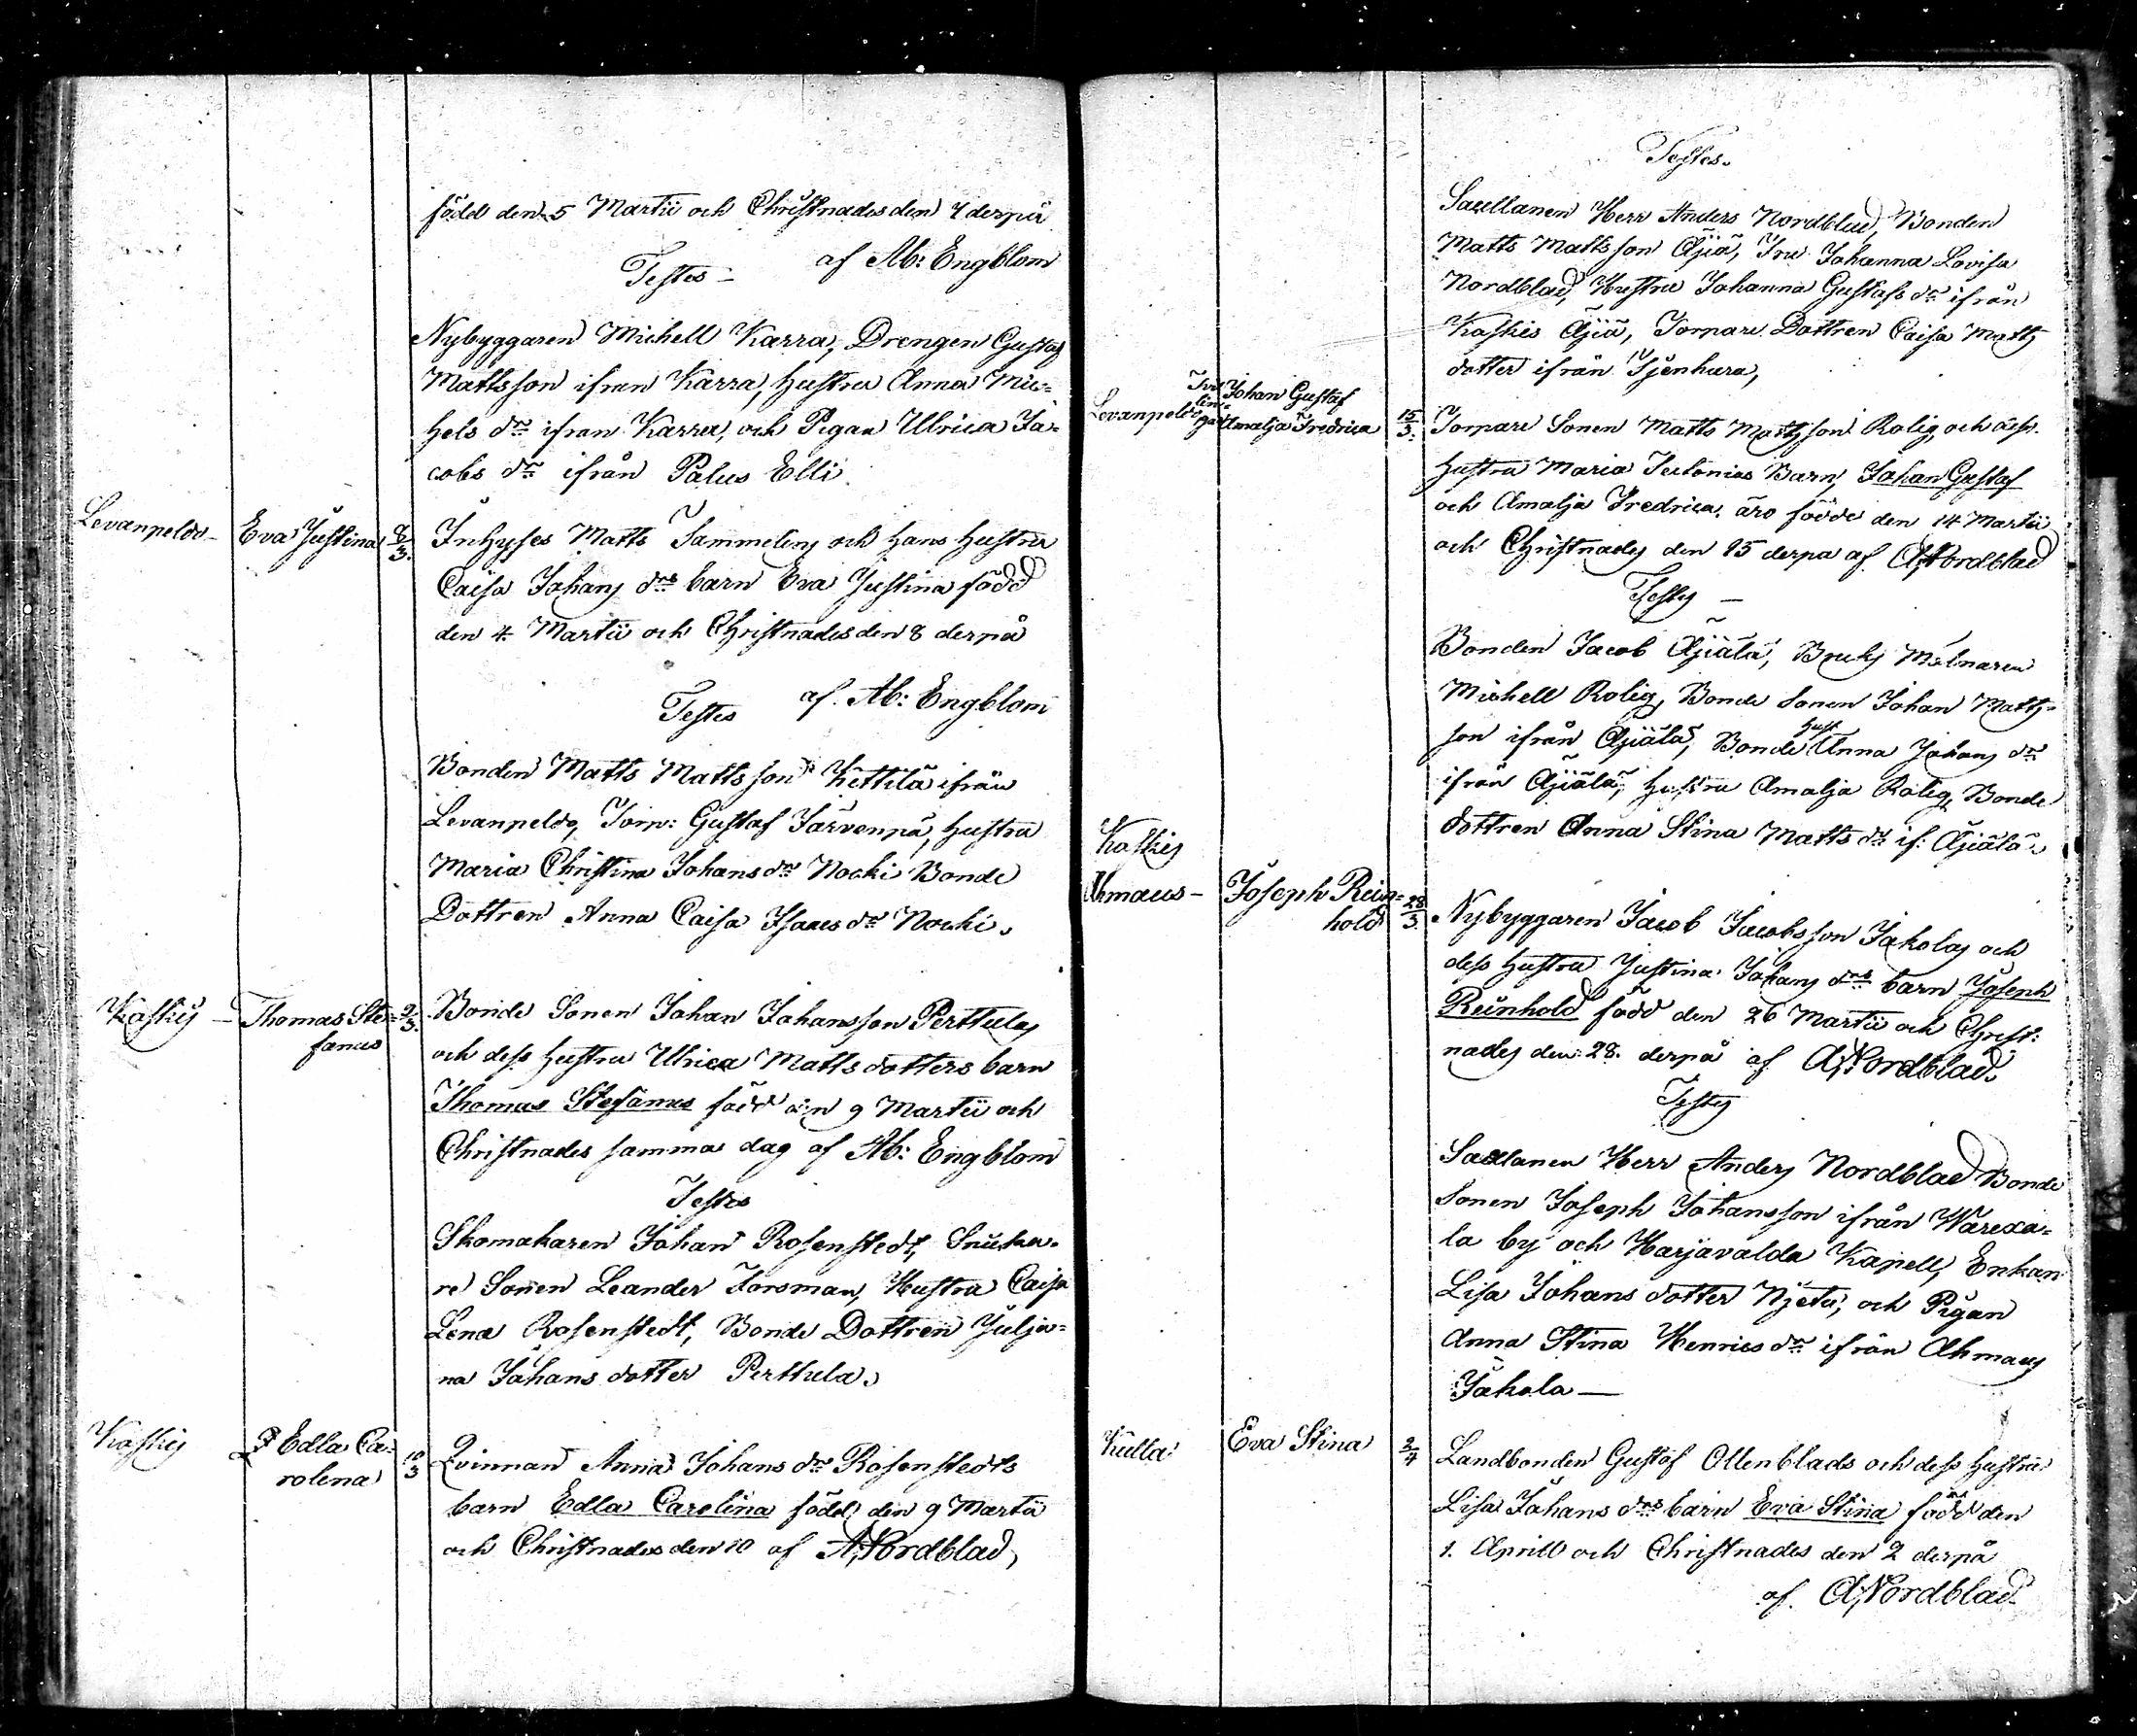 född den 5 Martii och Christnades den 7 derpå
af Ab: Engblom
Testes –
Nybyggaren Michell Karra, Drengen Gustaf
Mattsson ifrån Karra, hustru Anna Mic-
hels dr ifrån Karra, och Pigan Ulrica Ja-
cobs dr ifrån Palus Elli.
Levanpeldo – Eva Justina 8/3. Inhyses Matts Sammelins och hans hustru
Caisa Johans drs barn Eva Justina född
den 4. Martii och Christnades den 8 derpå
af. Ab: Engblom
Testes
Bonden Matts Mattsson Kettilä ifrån
Levanpeldo, Torp: Gustaf Järvenpä, hustru
Maria Christina Johans dr Nocki Bonde
Dottren Anna Caisa Isaacs dr Nocki.
Kaskis – Thomas Ste- 9/3. Bonde Sonen Johan Johansson Perttulas
fanus och dess hustru Ulrica Mattsdotters barn
Thomas Stefanus född den 9 Martii och
Christnades samma dag af Ab: Engblom
Testes
Skomakaren Johan Rosenstedt, Snicka-
re Sonen Leander Forsman, Hustru Caisa
Lena Rosenstedt, Bonde Dottren Julja-
na Johans dotter Perttula.
Kaskis Edla Ca- 10/3 Qvinnan Anna Johans dr Rosenstedts
rolina barn Edla Carolina född den 9 Martii
och Christnades den 10 af A. Nordblad,
Testes.
Sacellanen Herr Anders Nordblad, Bonden
Matts Mattsson Äjiä, Fru Johanna Lovisa
Nordblad, Hustru Johanna Gustafs dr ifrån
Kaskis Äjiä, Torpare Dottren Caisa Matts
dotter ifrån
Levanpeldo Tvil- Johan Gustaf
lin-
gar Amalja Fredrica 15/3. Torpare Sonen Matts Mattsson Rolig, och dess
hustru Maria Barn, Johan Gustaf
och Amalja Fredrica, äro födde den 14 Martii
och Christnades den 15 derpå af A. Nordblad
Testes –
Bonden Jacob Äjiälä, Bruks Mölnaren
Michell Rolig, Bonde Sonen Johan Matts-
son ifrån Äjiälä, Bonde hust Anna Johans dr
ifrån Äjiälä, hustru Amalja Rolig, Bonde
dottren Anna Stina Matts dr if: Äjiälä.
Kaskis
Ahmaus – Joseph Rein- 28/3. Nybyggaren Jacob Jacobsson Jakolas och
hold dess hustru Justina Johans drs barn Joseph
Reinhold född den 26 Martii och Christ:
nades den 28. derpå af A. Nordblad.
Testes
Sacellanen Herr Anders Nordblad Bonde
Sonen Joseph Johansson ifrån Warexa-
la by och Harjavalda Kapell, Enkan
Lisa Johans dotter och Pigan
Anna Stina Henrics dr ifrån Ahmaus
Jakola —
Kulla Eva Stina 2/4 Landbonden Gustaf Ollenblads och dess hustru
Lisa Johans drs barn Eva Stina född den
1. Aprill och Christnades den 2 derpå
af. A. Nordblad